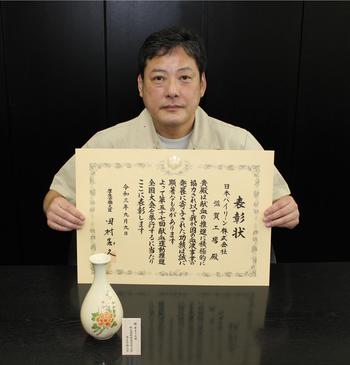 表彰状
日本バイリーン株式会社
滋賀工場 殿
貴殿は献血の推進に積極的に
協力されて我が国の血液事業の
発展に寄与された功績は誠に
顕著なものがあります
よって第五十七回献血運動推進
全国大会を挙行するに当たり
ここに表彰します
令和三年九月九日
厚生労働大臣
田村憲久